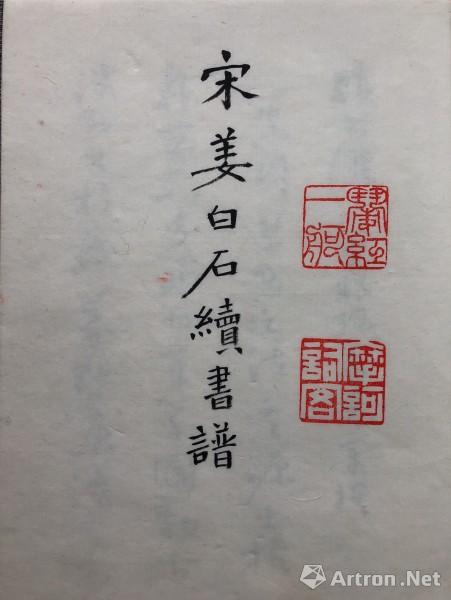 宋姜白石續書譜
摩訶
詞客
Artron.Net